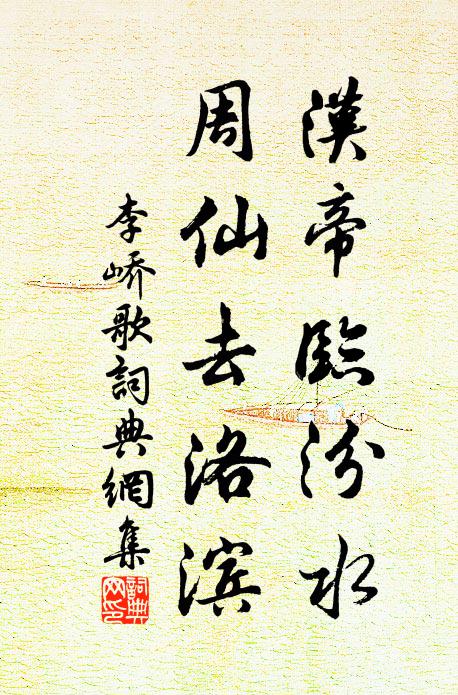 漢帝臨汾水
周仙去洛滨
李嶠歌詞典網集
詞典
网印